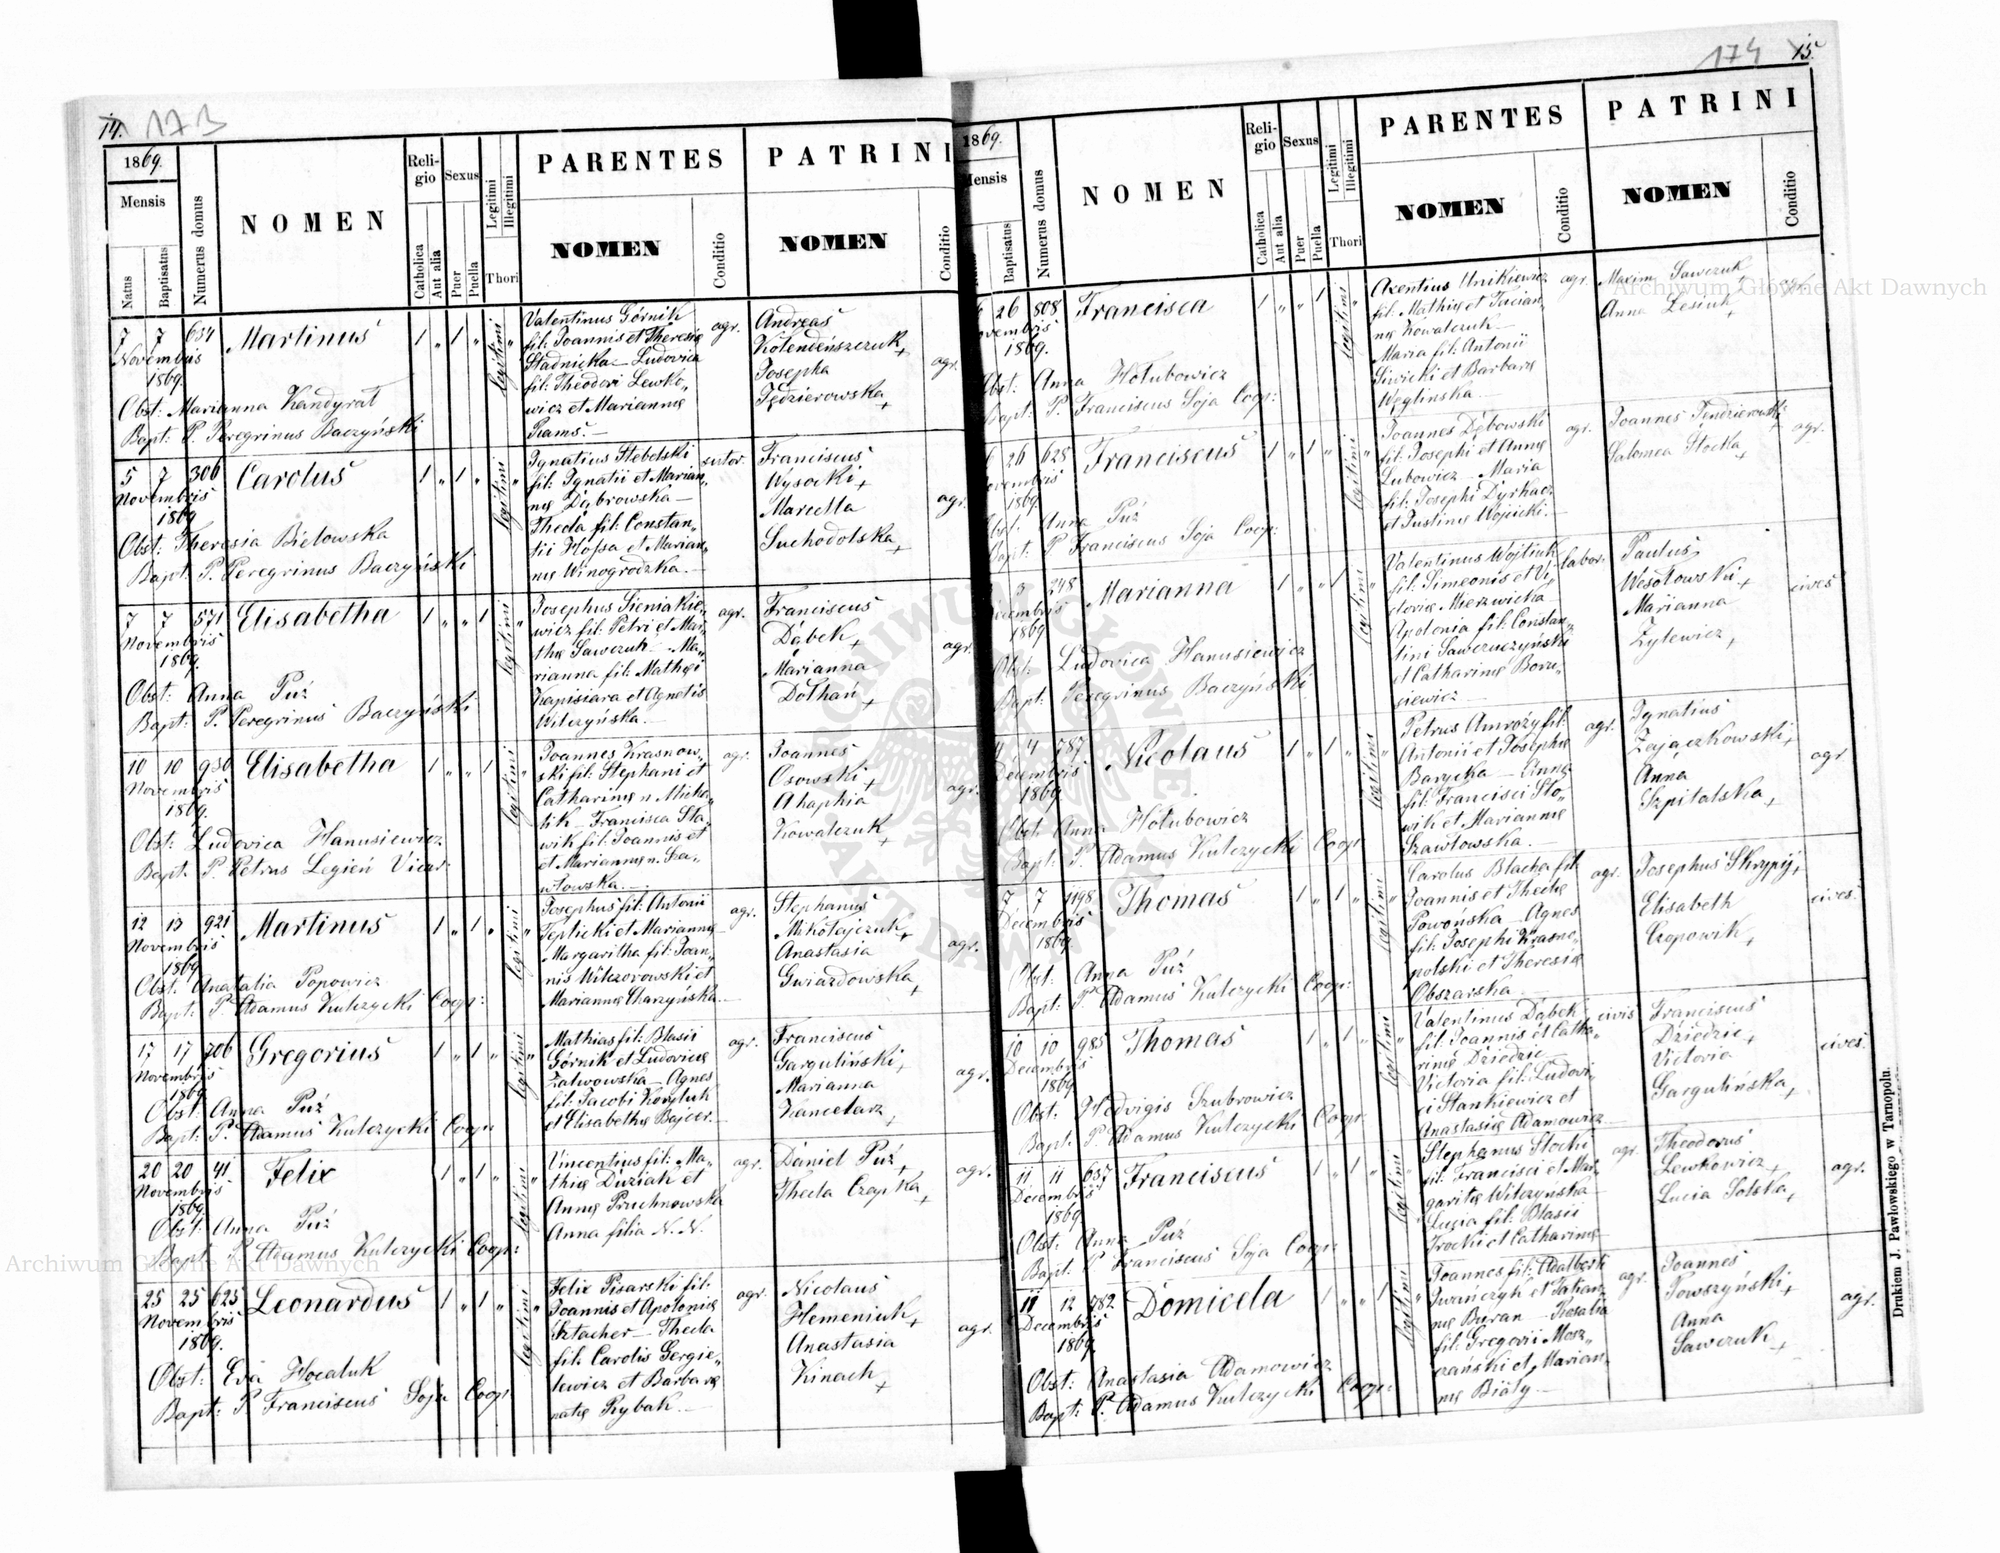 14. 173
1869.
Mensis
Natus
Baptisatus
Numerus domus
NOMEN
Religio
Catholica
Aut alia
Sexus
Puer
Puella
Legitimi
Illegitimi
Thori
PARENTES
NOMEN
Conditio
PATRINI
NOMEN
Conditio
7 7 634 Martinus 1 „ 1 „ legitimi „
Novembris
1869.
Obst: Marianna Kandyrat
Bapt: P. Peregrinus Baczyński
Valentinus Górnik
fil: Joannis et Theresię
Stadnicka – Ludovica
fil: Theodori Lewko„
wicz et Mariannę
Rams. –
agr.
Andreas
Kolendeńszczuk +
Josepha
Jędzierowska +
agr.
5 7 306 Carolus 1 „ 1 „ legitimi „
Novembris
1869
Obst: Theresia Bielowska
Bapt: P. Peregrinus Baczyński
Ignatius Stebelski
fil: Ignatii et Marian„
nę Dąbrowska –
Thecla fil: Constan„
tii Hofsa et Marian„
nę Winogrodzka. –
sutor.
Franciscus
Wysocki +
Marcella
Suchodolska +
agr.
7 7 571 Elisabetha 1 „ „ 1 legitimi „
Novembris
1869.
Obst: Anna Puź
Bapt: P. Peregrinus Baczyński
Josephus Sieniakie„
wicz fil: Petri et Mar„
thę Sawczuk – Ma„
rianna fil: Mathęi
Kapisiara et Agnetis
Wilczyńska. –
agr.
Franciscus
Dąbek +
Marianna
Dołhań +
agr.
10 10 930 Elisabetha 1 „ „ 1 legitimi „
Novembris
1869.
Obst: Ludovica Hanusiewicz
Bapt. P. Petrus Legień Vicar:
Joannes Krasnow„
ski fil: Stephani et
Catharinę n. Micha„
lik – Francisca Sła„
wik fil: Joannis et
et Mariannę n. Sza„
włowska. –
agr.
Joannes
Osowski +
Ahaphia
Kowalczuk +
agr.
12 13 921 Martinus 1 „ 1 „ legitimi „
Novembris
1869
Obst: Anatalia Popowicz
Bapt: P. Adamus Kulczycki Coop:
Josephus fil: Antonii
Teplicki et Mariannę
Margaritha fil: Joan„
nis Wilczorowski et
Mariannę Skarzyńska. –
agr.
Stephanus
Mikołajczuk +
Anastasia
Gwiazdowska +
agr.
17 17 706 Gregorius 1 „ 1 „ legitimi „
Novembris
1869.
Obst: Anna Puź
Bapt: P. Adamus Kulczycki Coop:
Mathias fil: Blasii
Górnik et Ludovicę
Zalwowska – Agnes
fil: Jacobi Korytuk
et Elisabethę Bajcer. –
agr.
Franciscus
Garguliński +
Marianna
Kancelarz +
agr.
20 20 41 Felix 1 „ 1 „ legitimi „
Novembris
1869.
Obst: Anna Puź
Bapt: P. Adamus Kulczycki Coop:
Vincentius fil: Ma„
thię Duziak et
Annę Pruchnowska
Anna filia N. N.
agr.
Daniel Puź +
Thecla Czapka +
agr.
25 25 625 Leonardus 1 „ 1 „ legitimi „
Novembris
1869.
Obst: Eva Hocaluk
Bapt: P. Franciscus Soja Coop:
Felix Pisarski fil:
Joannis et Apolonię
Sztacher – Thecla
fil: Carolis Gergie„
lewicz et Barbarę
natę Rybak. –
agr.
Nicolaus
Hemeniuk +
Anastasia
Kinach +
agr.
174 15.
1869.
Mensis
Baptisatus
Numerus domus
NOMEN
Religio
Catholica
Aut alia
Sexus
Puer
Puella
Legitimi
Illegitimi
Thori
PARENTES
NOMEN
Conditio
PATRINI
NOMEN
Conditio
26 808 Francisca 1 „ „ 1 legitimi „
1869.
Obst: Anna Hołubowicz
Bapt: P. Franciscus Soja Coop:
Axentius Unikiewicz
fil: Mathię et Tacian„
nę Kowalczuk –
Maria fil: Antonii
Siwicki et Barbarę
Węglinska
agr.
Maxim Sawczuk
Anna Lesiuk +
agr.
26 625 Franciscus 1 „ 1 „ legitimi „
1869.
Obst: Anna Puź
Bapt: P. Franciscus Soja Coop:
Joannes Dębowski
fil: Josephi et Annę
Lubowicz – Maria
fil: Josephi Dyrkacz
et Justinę Wojcicki. –
agr.
Joannes Jendzierowski
Salomea Stocka +
agr.
3 248 Marianna 1 „ „ 1 legitimi „
Decembris
1869
Obst: Ludovica Hanusiewicz
Bapt: Peregrinus Baczyński
Valentinus Wojtiuk
fil: Simeonis et Vi„
ctorię Mierzwicka
Apolonia fil: Constan„
tini Sawczuczyński
et Catharinę Boru„
siewicz –
labor.
Paulus
Wesołowski +
Marianna
Zylewicz +
cives
4 4 787 Nicolaus 1 „ 1 „ legitimi „
Decembris
1869.
Obst: Anna Hołubowicz
Bapt: P. Adamus Kulczycki Coop:
Petrus Amroży fil:
Antonii et Josephę
Barycka – Anna
fil: Francisci Sło„
wik et Mariannę
Szawłowska.
agr.
Ignatius
Zajączkowski +
Anna
Szpitalska +
agr
7 7 1198 Thomas 1 „ 1 „ legitimi „
Decembris
1869.
Obst: Anna Puź
Bapt: P. Adamus Kulczycki Coop:
Carolus Blacha fil:
Joannis et Theclę
Powońska – Agnes
fil: Josephi Krasno„
polski et Theresię
Obszarska
agr.
Josephus Skrypij +
Elisabeth
Czopowik +
cives.
10 10 985 Thomas 1 „ 1 „ legitimi „
Decembris
1869
Obst: Hedvigis Szubrowicz
Bapt: P. Adamus Kulczycki Coop:
Valentinus Dąbek
fil: Joannis et Catha„
rinę Dziedzic
Victoria fil: Ludovi„
ci Stankiewicz et
Anastasię Adamowicz –
civis
Franciscus
Dziedzic +
Victoria
Gargulińska +
cives.
11 11 637 Franciscus 1 „ 1 „ legitimi „
Decembris
1869.
Obst: Anna Puź
Bapt: P. Franciscus Soja Coop:
Stephanus Stocki
fil: Francisci et Mar„
garitę Wilczyńska –
Lucia fil: Blasii
Trocki et Catharinę
agr.
Theodorus
Lewkowicz +
Lucia Solska +
agr.
11 12 782 Domicela 1 „ „ 1 legitimi „
Decembris
1869.
Obst: Anastasia Adamowicz
Bapt: P. Adamus Kulczycki Coop:
Joannes fil: Adalberti
Iwańczyk et Tatian„
nę Buran – Rosalia
fil: Gregorii Mosz„
czański et Marian„
nę Biały –
agr.
Joannes
Powszyński +
Anna
Sawczuk +
agr.
Drukiem J. Pawłowskiego w Tarnopolu.
Archiwum Główne Akt Dawnych
Archiwum Główne Akt Dawnych
ARCHIWUM GŁÓWNE AKT DAWNYCH